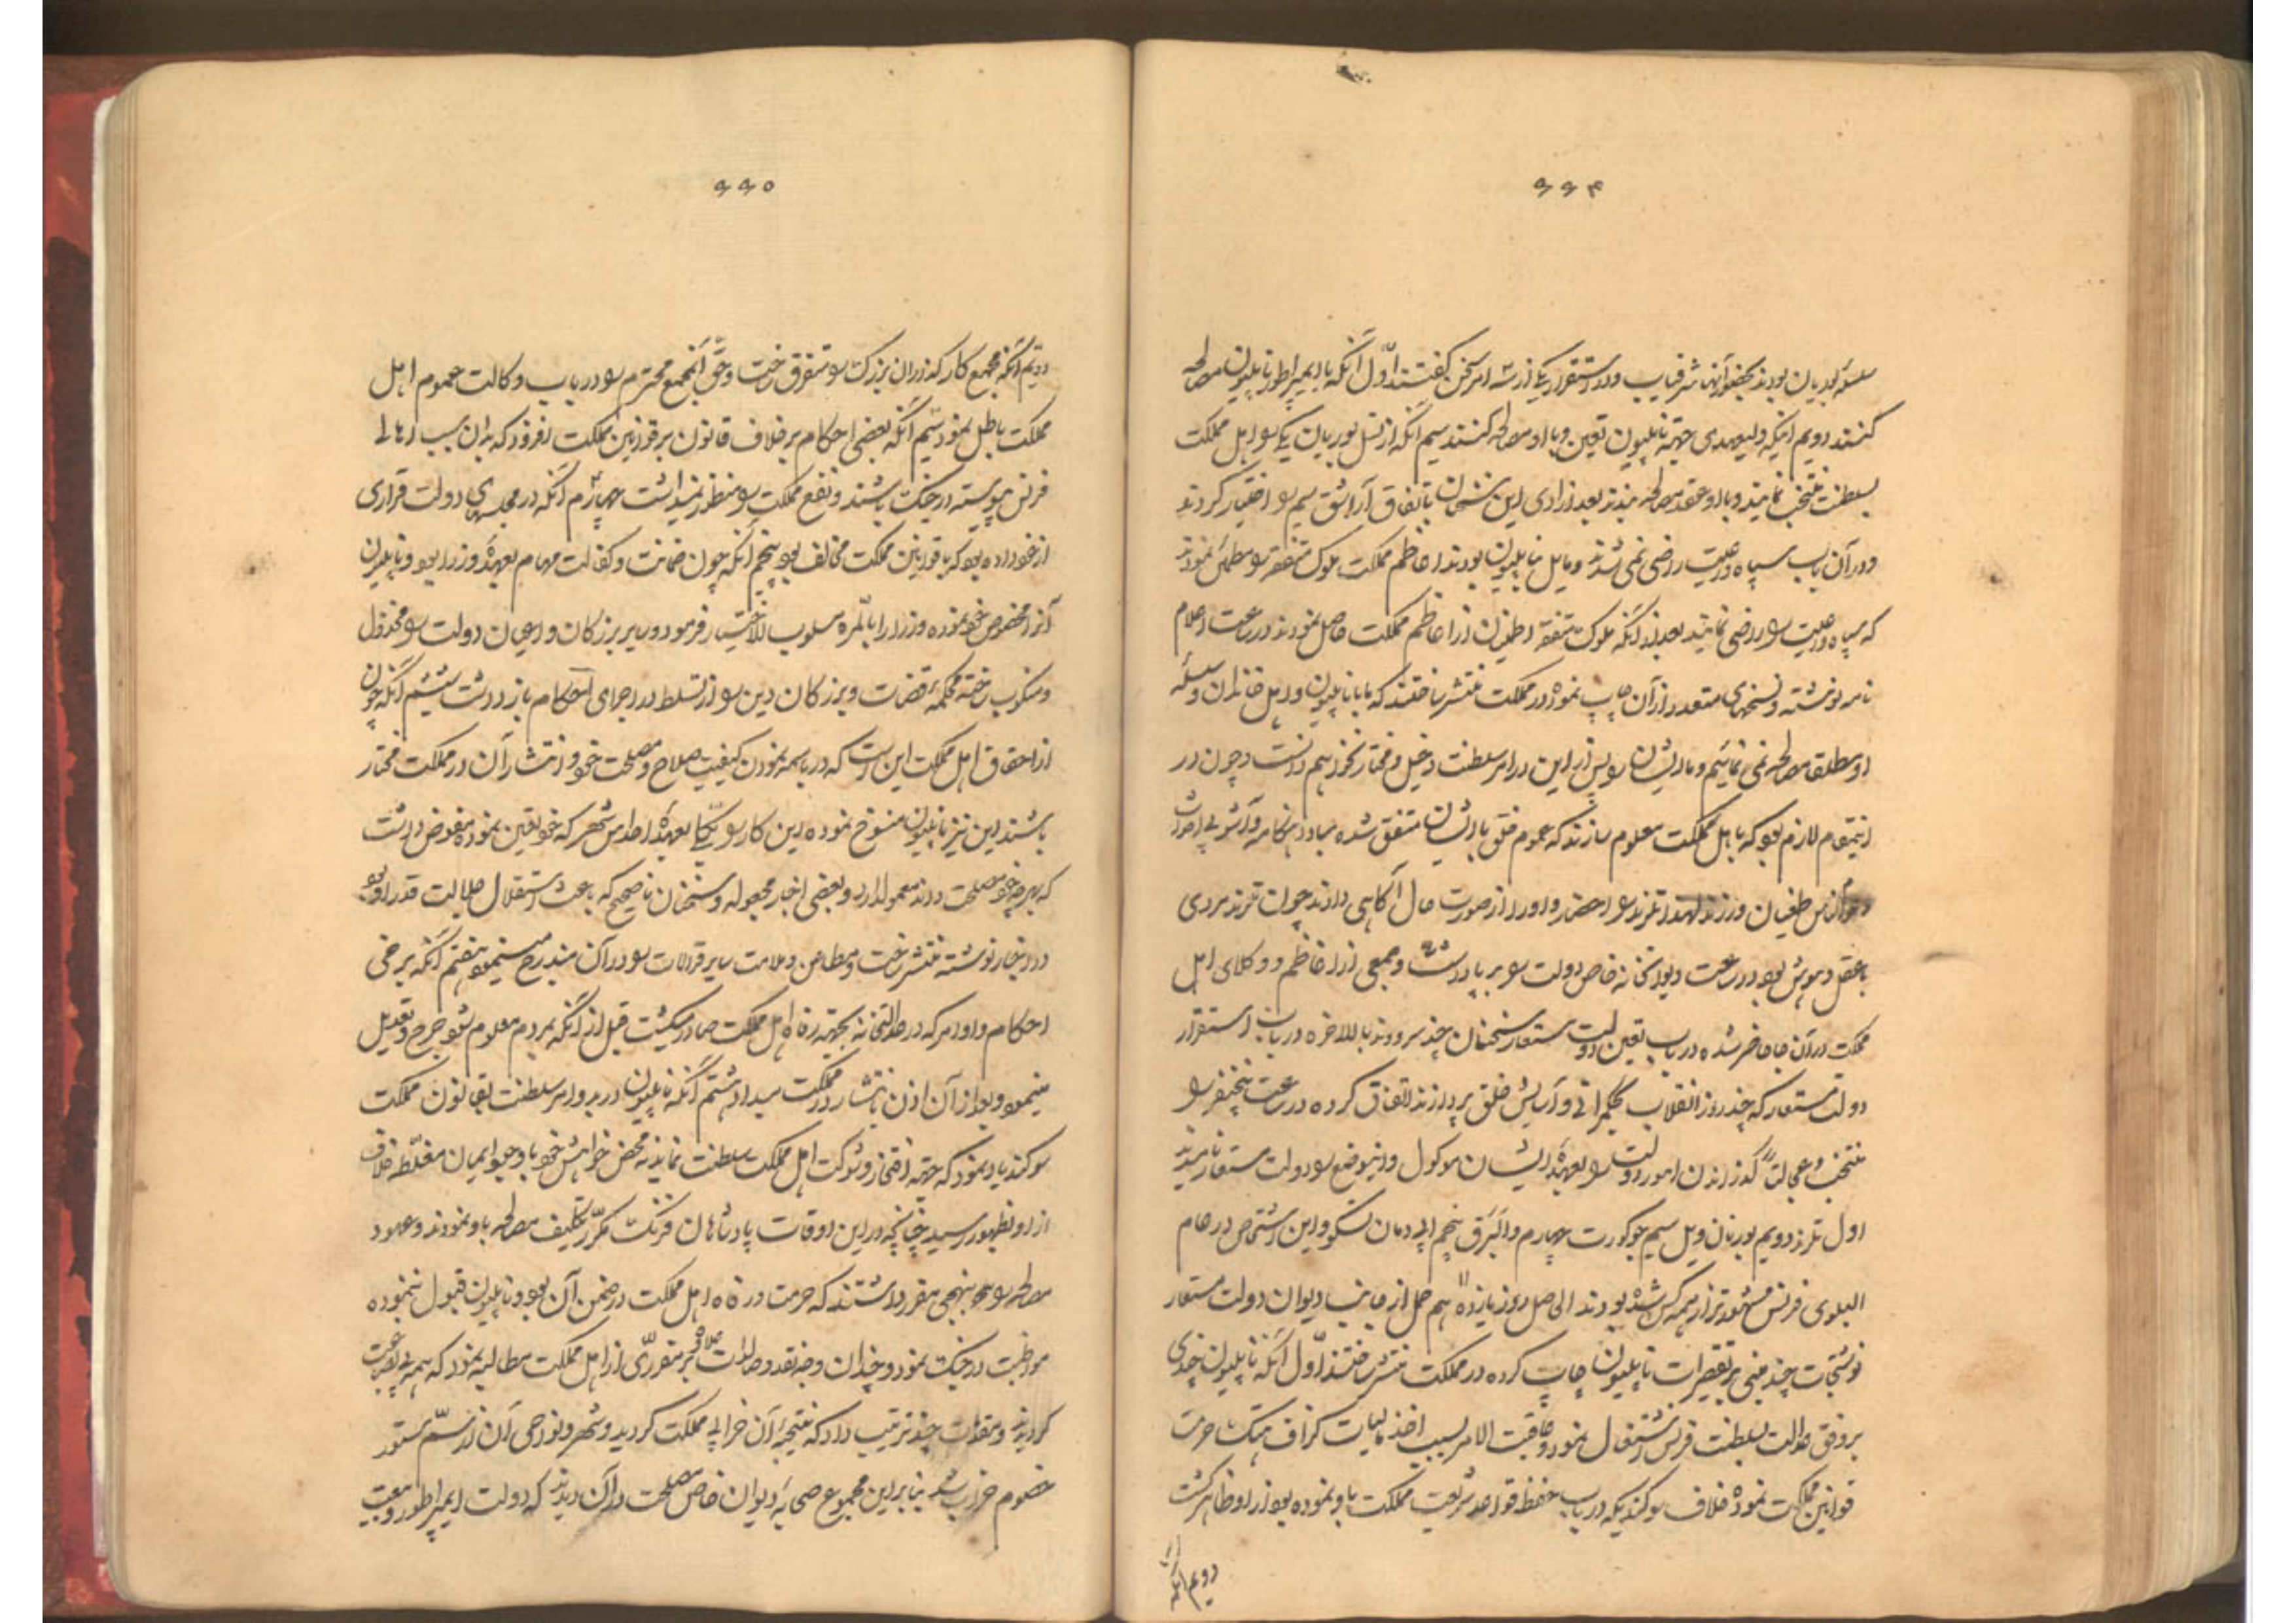 ۶۶۴
سلسله بوربان بودند بحضور آنها شرفیاب و در استقرار یکی از سه امر سخن گفتند اول آنکه با ایمپراطور ناپلیون مصالحه
کنند دویم اینکه ولیعهدی جهة ناپلیون تعین و با او مصالحه کنند سیم آنکه از نسل بوربان یکی را اهل مملکت
بسلطنت منتخب نمایند و با او عقد مصالحه بندند بعد از ادای این سخنان باتفاق آرا شق سیم را اختیار کردند
و در آن باب سپاه و رعیت راضی نمی شدند و مایل بناپلیون بودند اعاظم مملکت ملوک متفقه را مطمئن نمودند
که سپاه و رعیت را راضی نمایند بعد از آنکه ملوک متفقه اطمینان از اعاظم مملکت حاصل نمودند در ساعت اعلام
نامه نوشته و نسخهای متعدد از آن چاپ نموده در مملکت منتشر ساختند که ما با ناپلیون و اهل خاندان و سلسله
او مطلقا مصالحه نمی نمائیم و ما ایشان را پس از این در امر سلطنت دخیل و مختار نخواهیم دانست و چون در
اینمقام لازم بود که باهل مملکت معلوم سازند که عموم خلق با ایشان متفق شده مبادا هنکامه و آشوبی احداث
طغیان ورزند لهذا تلرند را احضار و او را از صورت حال آگاهی دادند چون تلرند مردی
با عقل و هوش بود در ساعت دیوانخانه خاص دولت را بر پا داشت و جمعی از اعاظم و وکلای اهل
مملکت در آن جا حاضر شده در باب تعین دولت مستعار سخنان چند سرودند بالاخره در باب استقرار
دولت مستعار که چند روز انقلاب بحکمرانی و آسایش خلق پردازند اتفاق کرده در ساعت پنجنفر را
منتخب و عجالتاً گذراندن امور دولت را بعهده ایشان موکول و اینوضع را دولت مستعار نامیدند
اول تلرند دویم بورنان ویل سیم جوکورت چهارم دالبرق پنجم ابی دمان تسکو و این اشخاص در عام
البلوی فرنس مشهورتر از همه کس شده بودند الحاصل روز یازدهم حمل از جانب دیوان دولت مستعار
نوشتجات چند مبنی بر تقصیرات ناپلیون چاپ کرده در مملکت منتشر ساختند اول آنکه ناپلیون چندی
بر وفق عدالت بسلطنت فرنس اشتغال نمود و عاقبت الامر بسبب اخذ مالیات کزاف هتک حرمت
قوانین مملکت نموده خلاف سوکندیکه در باب حفظ قواعد شریعت مملکت یاد نموده بود از او ظاهر کشت
دویم آنکه
۶۶۵
دویم آنکه مجمع کارکذاران بزرک را متفرق ساخت و حق آنمجمع محترم را در باب وکالت عموم اهل
مملکت باطل نمود سیم آنکه بعضی احکام بر خلاف قانون بر قوانین مملکت افزود که بدان سبب اهالی
فرنس پیوسته در جنک باشند و نفع مملکت را منظور نمیداشت چهارم آنکه در مجلسهای دولت قراری
از خود داده بود که با قوانین مملکت مخالف بود پنجم آنکه چون ضمانت و کفالت مهام بعهده وزرا بود و ناپلیون
آنرا مخصوص خود نموده وزرا را بالمره مسلوب الاختیار فرمود و سایر بزرکان و اعیان دولت را مخذول
و منکوب ساخته محکمه قضات و بزرکان دین را از تسلط در اجرای احکام باز داشت ششم آنکه چون
از احقاق اهل مملکت این است که در باسمه نمودن کیفیت صلاح و مصلحت خود و انتشار آن در مملکت مختار
باشند این نیز ناپلیون منسوخ نموده این کار را یکجا بعهده احداس شهر که خود تعین نموده مفوض داشت
که هر چه خود مصلحت داند معمول دارد و بعضی اخبار مجعوله و سخنان ناصحیح که باعث استقلال جلالت قدر او بود
در اخبار نوشته منتشر ساخت و مطاعن و ملامت سایر قرالات را در آن مندرج مینمود هفتم آنکه برخی
احکام و اوامر که در عدالتخانه بجهة رفاه اهل مملکت صادر میکشت قبل از آنکه بمردم معلوم شود جرح و تعدیل
مینمود و بعد از آن اذن بانتشار در مملکت میداد هشتم آنکه ناپلیون در بدو امر سلطنت بقانون مملکت
سوکند یاد نمود که جهة افتخار و شوکت اهل مملکت سلطنت نماید نه محض خواهش خود با وجود ایمان مغلظه خلاف
از او بظهور رسید چنانچه در این اوقات پادشاهان فرنک مکرر تکلیف مصالحه باو نمودند و عهود
مصالحه را بنهجی مقرر داشتند که حرمت و رفاه اهل مملکت در ضمن آن بود و ناپلیون قبول ننموده
مواظبت در جنک نمود و چندان وجه نقد و مالیات علاوه بر مقرری از اهل مملکت مطالبه نمود که همه بی بضاعت
کردیدند و مقدمات چند ترتیب داد که نتیجه آن خرابی مملکت کردید و شهر و نواحی آن از سم ستور
خصوم خراب شد بنابراین مجموع صحابه دیوان خاص مصلحت در آن دیدند که دولت ایمپراطور و تبعیت